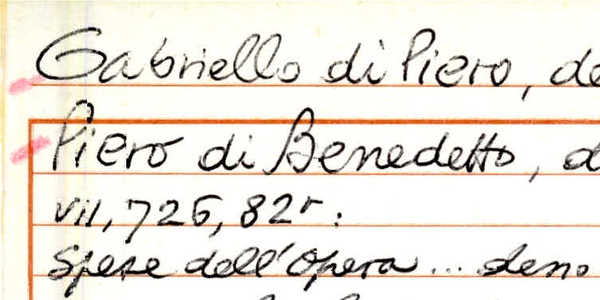 Gabriello di Piero, de
Piero di Benedetto, d
VII, 726, 82r:
Spese dell'Opera... deno